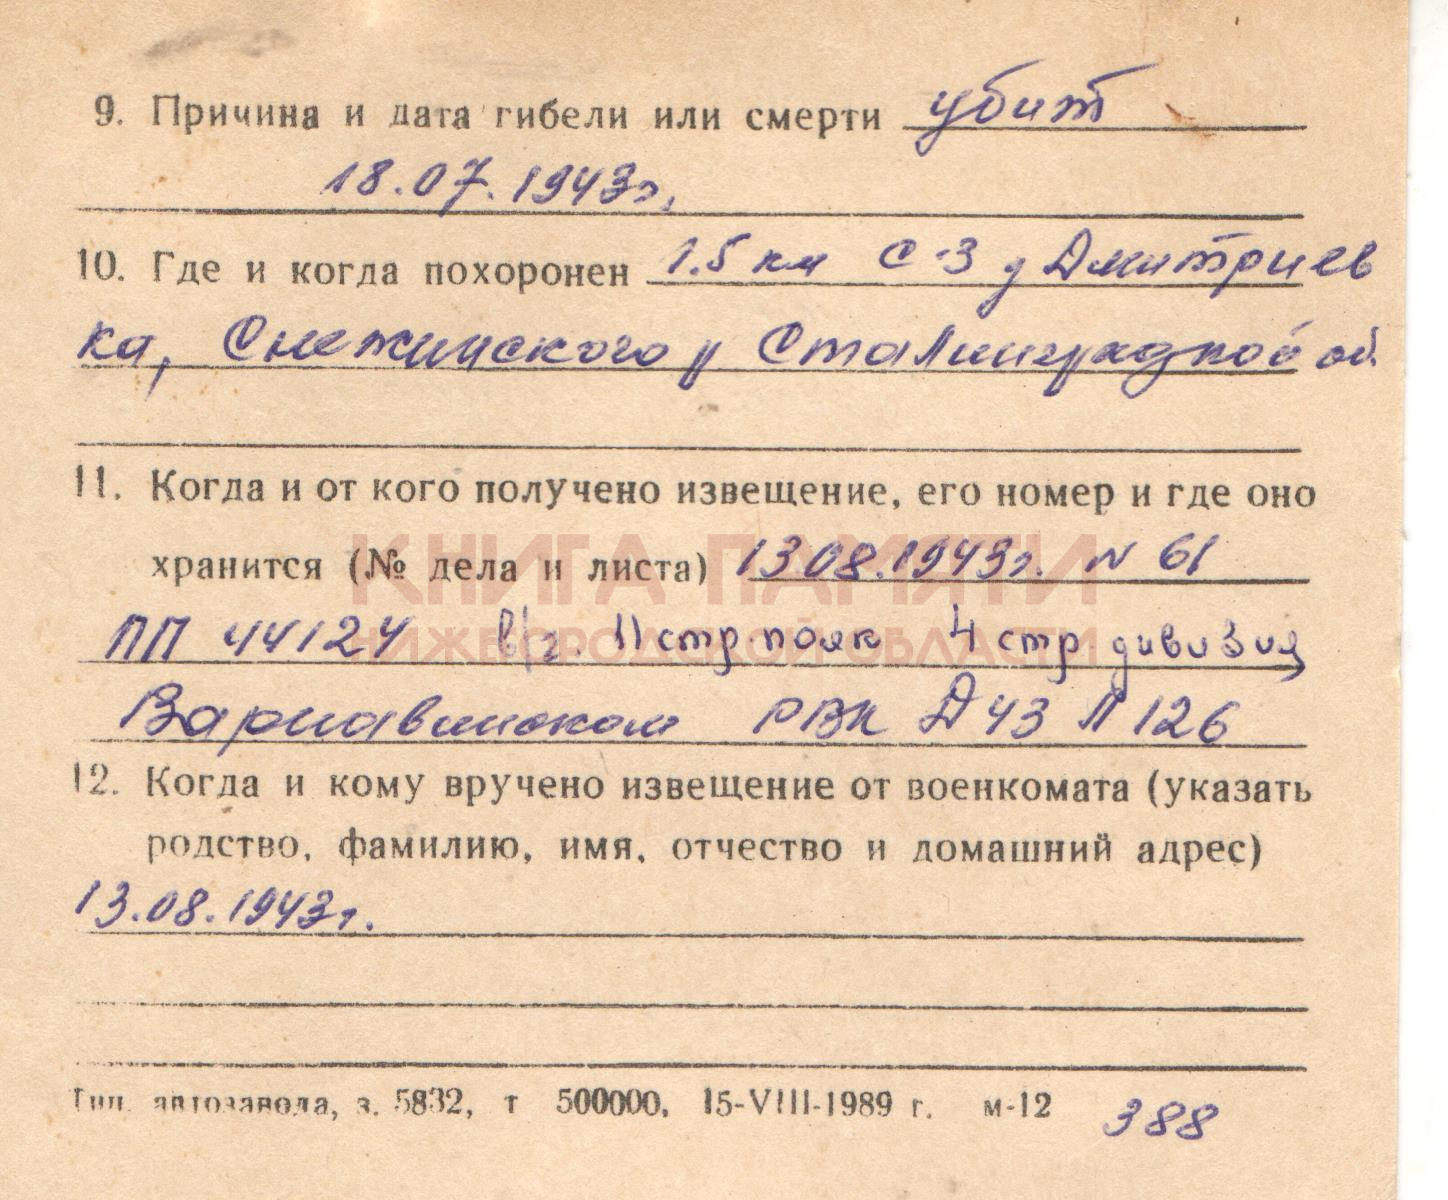 9. Причина и дата гибели или смерти убит
18.07.1943г.
10. Где и когда похоронен 1.5 км С-З д Дмитриев
ка, Снежинского р Сталинградской об
11. Когда и от кого получено извещение, его номер и где оно
хранится (№ дела и листа) 13.08.1943г. N 61
КНИГА ПАМЯТИ
НИЖЕГОРОДСКОЙ ОБЛАСТИ
ПП 44124 в/ч. 11 стр. полк 4 стр дивизия
Варнавинском РВК Д 43 Л 126
12. Когда и кому вручено извещение от военкомата (указать
родство, фамилию, имя, отчество и домашний адрес)
13.08.1943г.
Тип. автозавода, з. 5832, т 500000, 15-VIII-1989 г. м-12 388